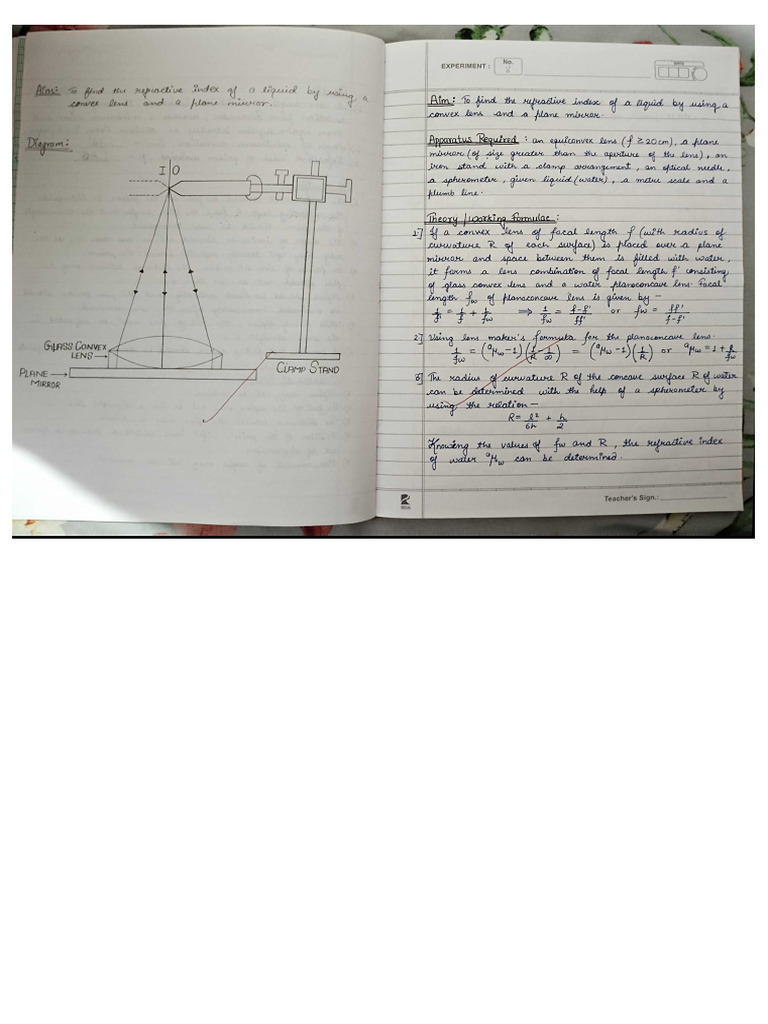 Aim: To find the refractive index of a liquid by using a
convex lens and a plane mirror.
Diagram:
I O
GLASS CONVEX
LENS
PLANE
MIRROR
CLAMP STAND
EXPERIMENT : No.
DATE
Aim: To find the refractive index of a liquid by using a
convex lens and a plane mirror.
Apparatus Required : an equiconvex lens (f ≥ 20cm), a plane
mirror (of size greater than the aperture of the lens), an
iron stand with a clamp arrangement, an optical needle,
a spherometer, given liquid (water), a metre scale and a
plumb line.
Theory / Working Formulae :
1] If a convex lens of focal length f (with radius of
curvature R of each surface) is placed over a plane
mirror and space between them is filled with water,
it forms a lens combination of focal length f' consisting
of glass convex lens and a water planoconcave lens. Focal
length fw of planoconcave lens is given by –
1/f' = 1/f + 1/fw ⇒ 1/fw = f-f'/ff' or fw = ff'/f-f'
2] Using lens maker's formula for the planoconcave lens.
1/fw = (ᵃμw -1)(1/R - 1/∞) = (ᵃμw -1)(1/R) or ᵃμw = 1 + R/fw
3] The radius of curvature R of the concave surface R of water
can be determined with the help of a spherometer by
using the relation –
R = l²/6h + h/2
Knowing the values of fw and R, the refractive index
of water ᵃμw can be determined.
Teacher's Sign.: